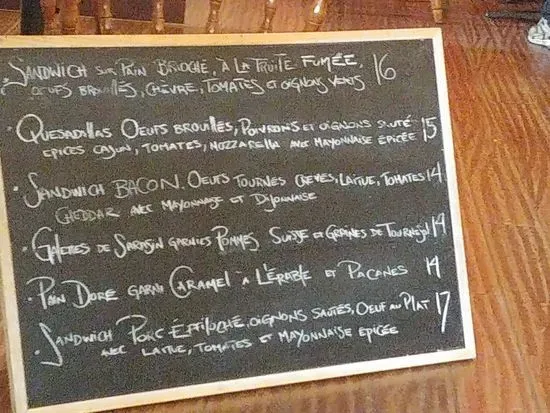 • SANDWICH SUR PAIN BRIOCHÉ, À LA TRUITE FUMÉE, 16
OEUFS BROUILLÉS, CHÈVRE, TOMATES ET OIGNONS VERTS
• QUESADILLAS OEUFS BROUILLÉS, POIVRONS ET OIGNONS SAUTÉ 15
EPICES CAJUN, TOMATES, MOZZARELLA AVEC MAYONNAISE ÉPICÉE
• SANDWICH BACON. OEUFS TOURNÉS CREVÉS, LAITUE, TOMATES 14
CHEDDAR AVEC MAYONNAISE ET DIJONNAISE
• GALETTES DE SARASIN GARNIES POMMES SUISSE ET GRAINES DE TOURNESOL 14
• PAIN DORÉ GARNI CARAMEL À L'ÉRABLE ET PACANES 14
• SANDWICH PORC ÉFFILOCHÉ, OIGNONS SAUTÉS, OEUF AU PLAT 17
AVEC LAITUE, TOMATES ET MAYONNAISE ÉPICÉE